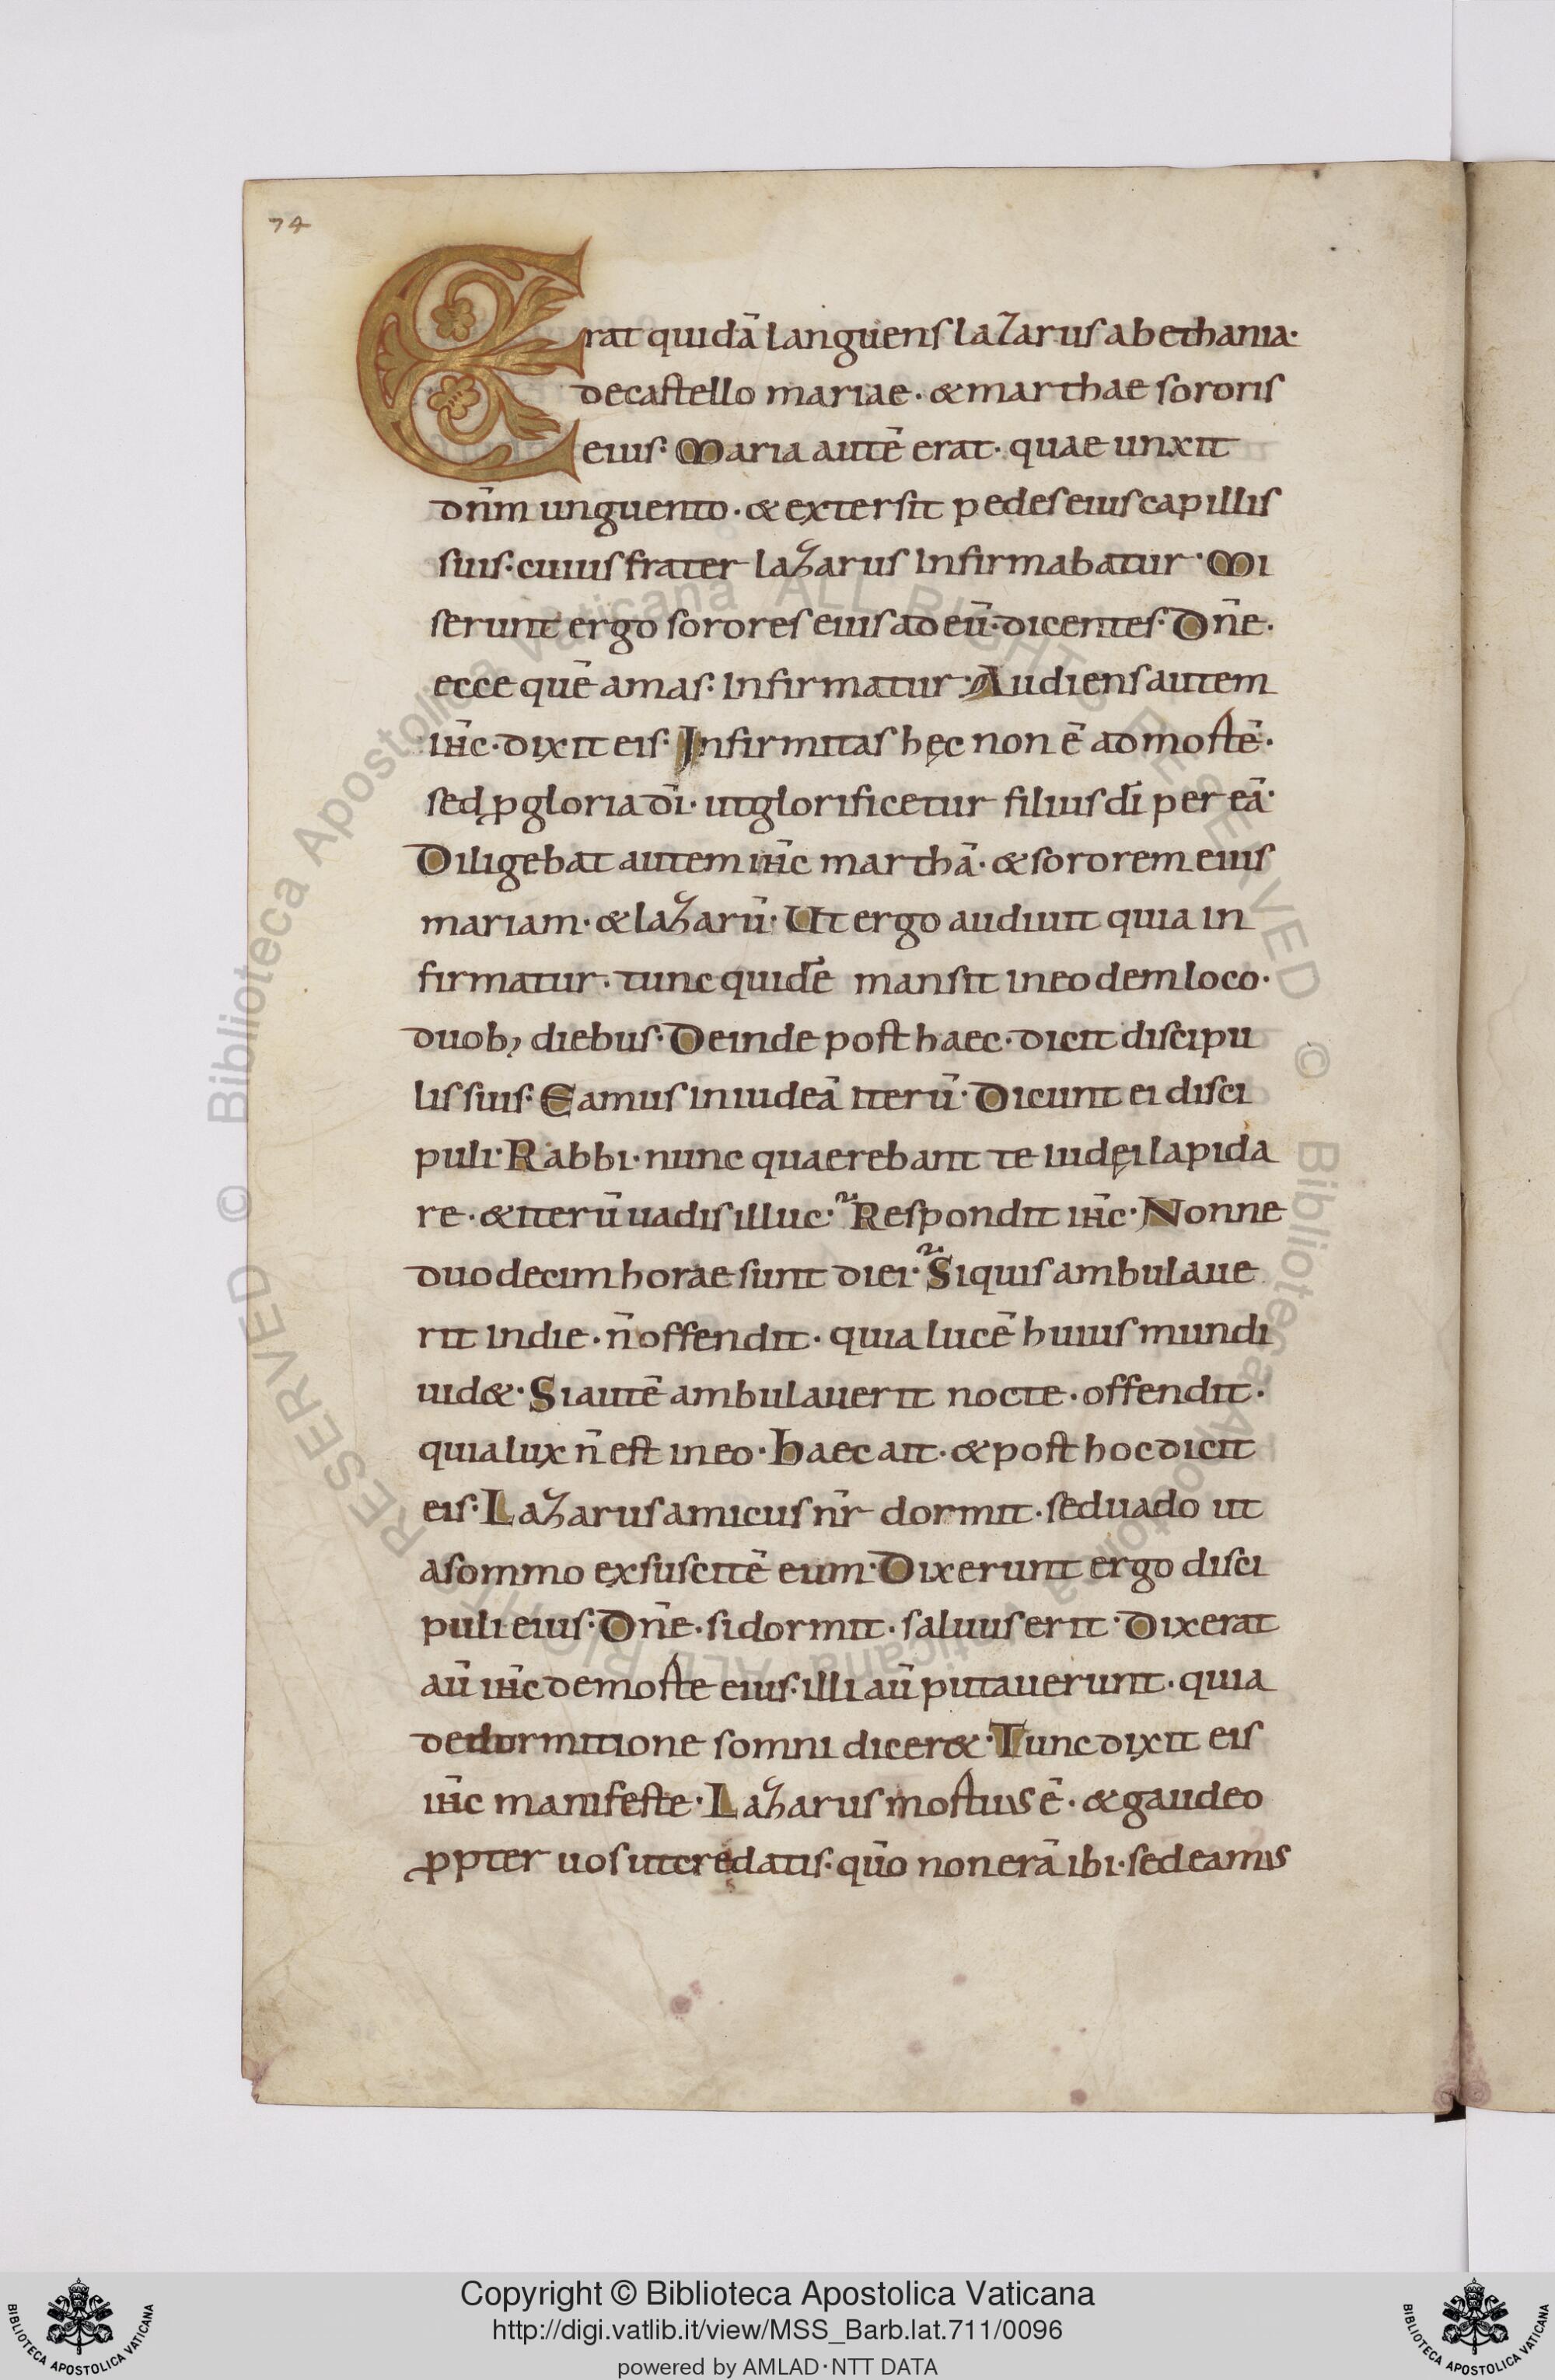 74
Erat quidā languens lazarus abethania·
decastello mariae· &marthae sororis
eius· Maria autē erat· quae unxit
dn̄m unguento· &extersit pedes eius capillis
suis· cuius frater lazarus infirmabatur· Mi
serunt ergo sorores eius ad eū· dicentes· Dn̄e·
ecce quē amas· infirmatur· Audiens autem
ih̄c· dixit eis· Infirmitas hęc non ē ad mortē·
sed ꝓ gloria dī· ut glorificetur filius dī per eā·
Diligebat autem ih̄c marthā· &sororem eius
mariam· &lazarū· Ut ergo audiuit quia in
firmatur· tunc quidē mansit in eodem loco·
duob; diebus· Deinde post haec· dicit discipu
lis suis· Eamus in iudeā iterū· Dicunt ei disci
puli· Rabbi· nunc quaerebant te iudęi lapida
re· &iterū uadis illuc· Respondit ih̄c· Nonne
duodecim horae sunt diei· Siquis ambulaue
rit in die· n̄ offendit· quia lucē huius mundi
uid&· Si autē ambulauerit nocte· offendit·
quia lux n̄ est in eo· Haec ait· &post hoc dicit
eis· Lazarus amicus nr̄ dormit· sed uado ut
a sommo exsuscitē eum· Dixerunt ergo disci
puli eius· Dn̄e· si dormit· saluus erit· Dixerat
aū ih̄c de morte eius· illi aū putauerunt· quia
de dormitione somni dicer&· Tunc dixit eis
ih̄c manifeste· Lazarus mortuus ē· &gaudeo
ꝓpter uos ut credatis· qūo non erā ibi· sed eamus
© Biblioteca Apostolica Vaticana ALL RIGHTS RESERVED © Biblioteca Apostolica Vaticana ALL RIGHTS RESERVED
Copyright © Biblioteca Apostolica Vaticana
http://digi.vatlib.it/view/MSS_Barb.lat.711/0096
powered by AMLAD·NTT DATA
BIBLIOTECA APOSTOLICA VATICANA
BIBLIOTECA APOSTOLICA VATICANA